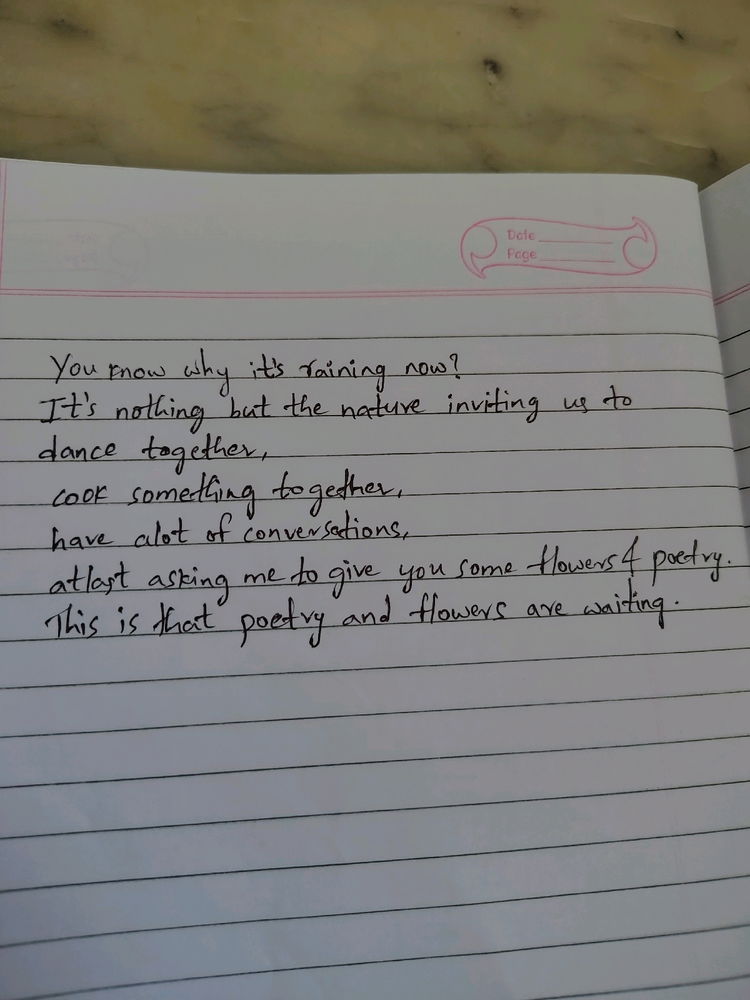 Date
Page
You know why it's raining now?
It's nothing but the nature inviting us to
dance together,
cook something together,
have alot of conversations,
atlast asking me to give you some flowers & poetry.
This is that poetry and flowers are waiting.